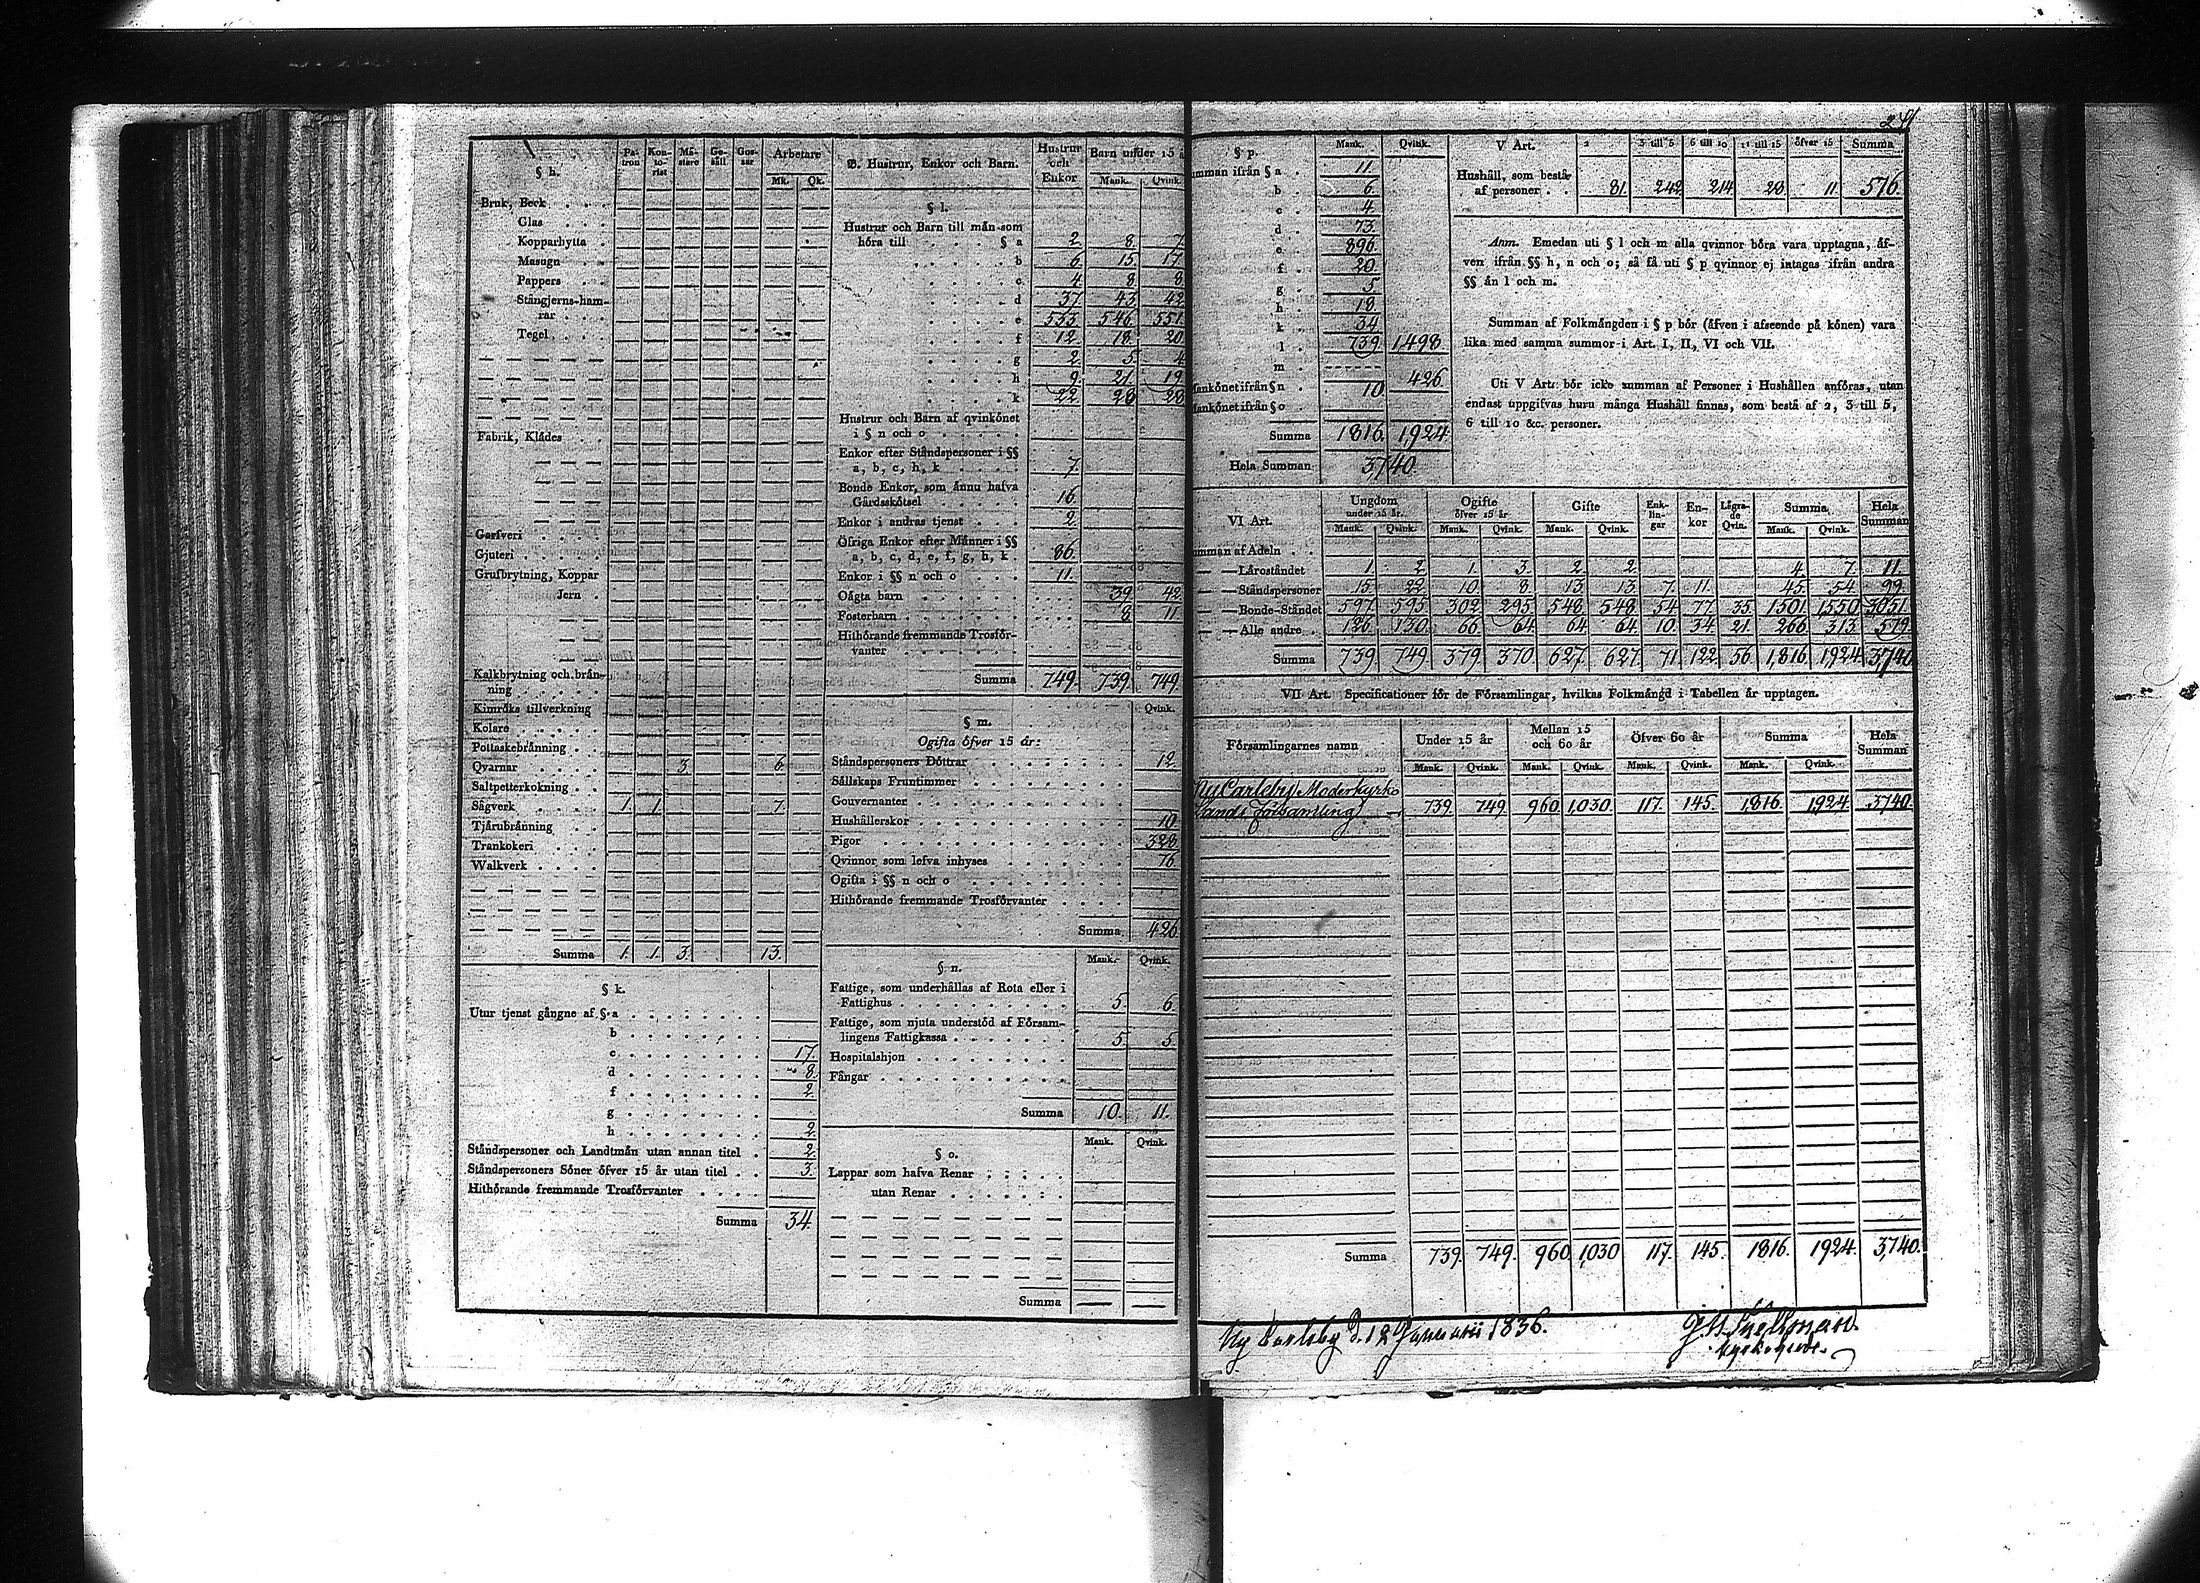 § h.
Pa-tron Kon-to-rist Mä-stare Ge-säll Gos-sar Arbetare
Mk. Qk.
Bruk, Beck
Glas
Kopparhytta
Masugn
Pappers
Stångjerns-ham-
rar
Tegel
Fabrik, Klädes
Garfveri
Gjuteri
Grufbrytning, Koppar
Jern
Kalkbrytning och brän-
ning
Kimröks tillverkning
Kolare
Pottaskebränning
Qvarnar 3. 6.
Saltpetterkokning
Sågverk 1. 1. 7.
Tjärubränning
Trankokeri
Walkverk
Summa 1. 1. 3. 13.
§ k.
Utur tjenst gångne af § a
b
c 17.
d 8.
f 2.
g
h 2.
Ståndspersoner och Landtmän utan annan titel 2.
Ståndspersoners Söner öfver 15 år utan titel 3.
Hithörande fremmande Trosförvanter
Summa 34.
Hustrur, Enkor och Barn.
Hustrur och Enkor
Barn under 15
Mank. Qvink.
§ l.
Hustrur och Barn till män som
höra till § a 2. 8. 7.
b 6. 15. 17
c 4. 8. 8.
d 37. 43. 42
e 553. 546. 551.
f 12. 18. 20
g 2. 5. 4
h 9. 21. 19
k 22. 28 28
Hustrur och Barn af qvinkönet
i § n och o
Enkor efter Ståndspersoner i §§
a, b, c, h, k 7.
Bonde Enkor, som ännu hafva
Gårdsskötsel 16.
Enkor i andras tjenst 2.
Öfriga Enkor efter Männer i §§
a, b, c, d, e, f, g, h, k 86.
Enkor i §§ n och o 11.
Oägta barn 39. 42
Fosterbarn 8. 11
Hithörande fremmande Trosför-
vanter
Summa 749. 739. 749
§ m. Qvink.
Ogifta öfver 15 år:
Ståndspersoners Döttrar 12.
Sällskaps Fruntimmer
Gouvernanter
Hushållerskor 10
Pigor 328
Qvinnor som lefva inhyses 76
Ogifta i §§ n och o
Hithörande fremmande Trosförvanter
Summa 426
§ n. Mank. Qvink.
Fattige, som underhållas af Rota eller i
Fattighus 5. 6.
Fattige, som njuta understöd af Försam-
lingens Fattigkassa 5. 5.
Hospitalshjon
Fångar
Summa 10. 11.
§ o. Mank. Qvink.
Lappar som hafva Renar
utan Renar
Summa — —
§ p. Mank. Qvink.
mman ifrån § a 11.
b 6.
c 4
d 73.
e 896.
f 20.
g 5
h 18.
k 34
l 739 1,498
m 426.
Mankönet ifrån § n 10
Mankönet ifrån § o
Summa 1816. 1,924
Hela Summan 3,740.
V Art. 2 3 till 5 6 till 10 11 till 15 öfver 15 Summa
Hushåll, som bestå
af personer 81. 242 214 28 11. 576.
Anm. Emedan uti § l och m alla qvinnor böra vara upptagna, äf-
ven ifrån §§ h, n och o; så få uti § p qvinnor ej intagas ifrån andra
§§ än l och m.
Summan af Folkmängden i § p bör (äfven i afseende på könen) vara
lika med samma summor i Art. I, II, VI och VII.
Uti V Art. bör icke summan af Personer i Hushållen anföras, utan
endast uppgifvas huru många Hushåll finnas, som bestå af 2, 3 till 5,
6 till 10 &c. personer.
VI Art.
Ungdom under 15 år. Ogifte öfver 15 år Gifte Enk-lin-gar En-kor Lägra-de Qvin. Summa Hela Summan
Mank. Qvink. Mank. Qvink. Mank. Qvink. Mank. Qvink.
mman af Adeln
— — Läroståndet 1. 2 1. 3. 2. 2. 4. 7. 11.
— — Ståndspersoner 15. 22. 10. 8. 13. 13. 7. 11. 45. 54. 99.
— — Bonde-Ståndet 597. 595. 302 295. 548. 548. 54 77. 35. 1501. 1550. 3051.
— — Alle andre 126. 130. 66. 64 64 64. 10. 34 21. 266 313. 579
Summa 739. 749. 379. 370 627. 627. 71 122 56. 1,816 1,924 3,740
VII Art. Specificationer för de Församlingar, hvilkas Folkmängd i Tabellen är upptagen.
Församlingarnes namn Under 15 år Mellan 15 och 60 år Öfver 60 år Summa Hela Summan
Mank. Qvink. Mank. Qvink. Mank. Qvink. Mank. Qvink.
Ny Carleby Moderkyrko
Lands Församling 739. 749. 960. 1,030. 117. 145. 1,816. 1,924. 3740.
Summa 739. 749. 960. 1,030 117. 145. 1816. 1,924. 3,740.
Ny Carleby d. 12 Januarii 1836.